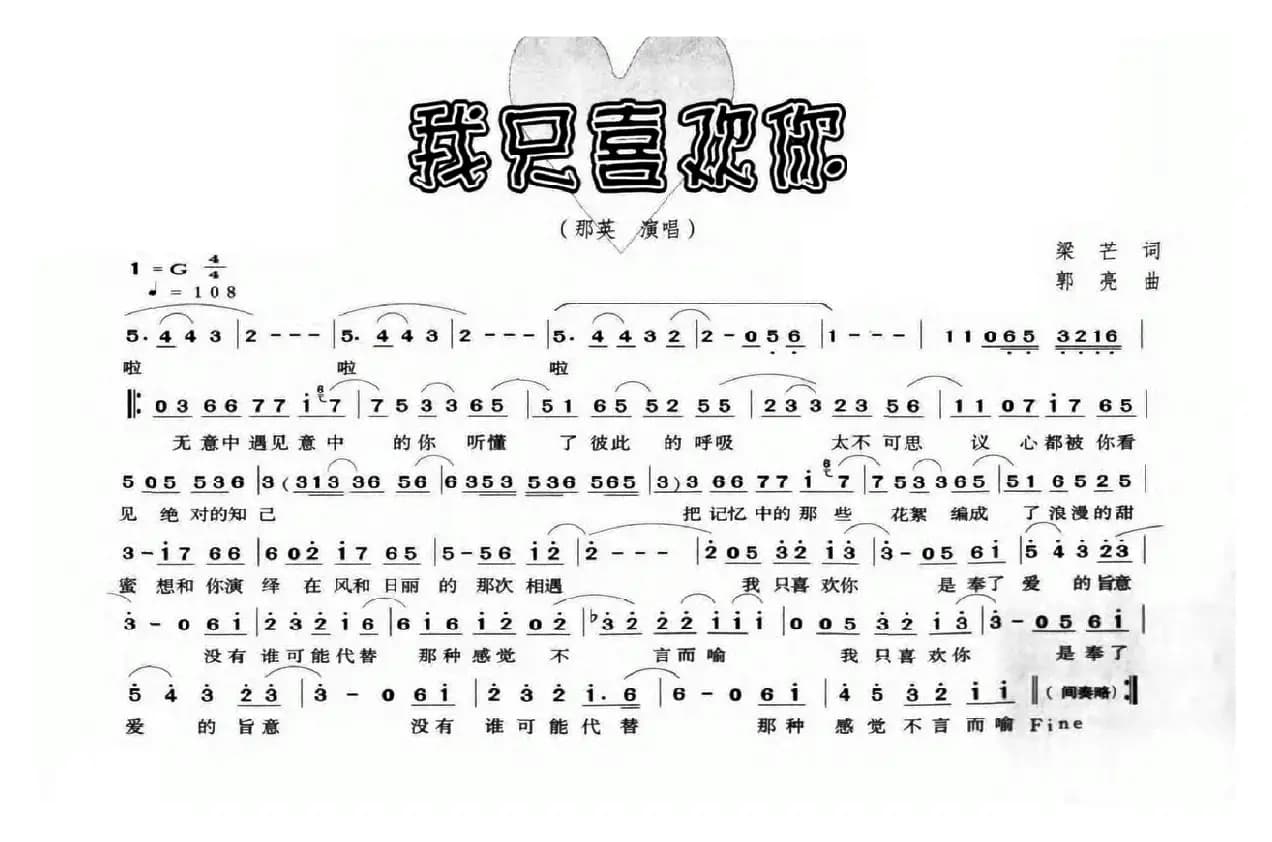 我只喜欢你
（那英 演唱）
梁芒 词
1 = G 4/4
郭亮 曲
♩ = 108
5. 4 4 3 | 2 - - - | 5. 4 4 3 | 2 - - - | 5. 4 4 3 2 | 2 - 0 5 6 | 1 - - - | 1 1 0 6 5 3 2 1 6 |
啦 啦 啦
‖: 0 3 6 6 7 7 i 6 7 | 7 5 3 3 3 6 5 | 5 1 6 5 5 2 5 5 | 2 3 3 2 3 5 6 | 1 1 0 7 i 7 6 5 |
无意中遇见意中 的你 听懂 了彼此 的呼吸 太不可思 议 心都被你看
5 0 5 5 3 6 | 3 ( 3 1 3 3 6 5 6 | 6 3 5 3 5 3 6 5 6 5 | 3 ) 3 6 6 7 7 i 6 7 | 7 5 3 3 6 5 | 5 1 6 5 2 5 |
见 绝对的知己 把记忆中的那些 花絮 编成 了浪漫的甜
3 - i 7 6 6 | 6 0 2 i 7 6 5 | 5 - 5 6 i 2 | 2 - - - | 2 0 5 3 2 i 3 | 3 - 0 5 6 i | 5 4 3 2 3 |
蜜 想和你演 绎 在风和日丽的那次相遇 我只喜欢你 是奉了爱的旨意
3 - 0 6 i | 2 3 2 i 6 | 6 i 6 i 2 0 2 | ♭3 2 2 2 i i i | 0 0 5 3 2 i 3 | 3 - 0 5 6 i |
没有谁可能代替 那种感觉 不 言而喻 我只喜欢你 是奉了
5 4 3 2 3 | 3 - 0 6 i | 2 3 2 i. 6 | 6 - 0 6 i | 4 5 3 2 i i ‖ ( 间奏略 ) :‖
爱的旨意 没有谁可能代替 那种感觉不言而喻 Fine